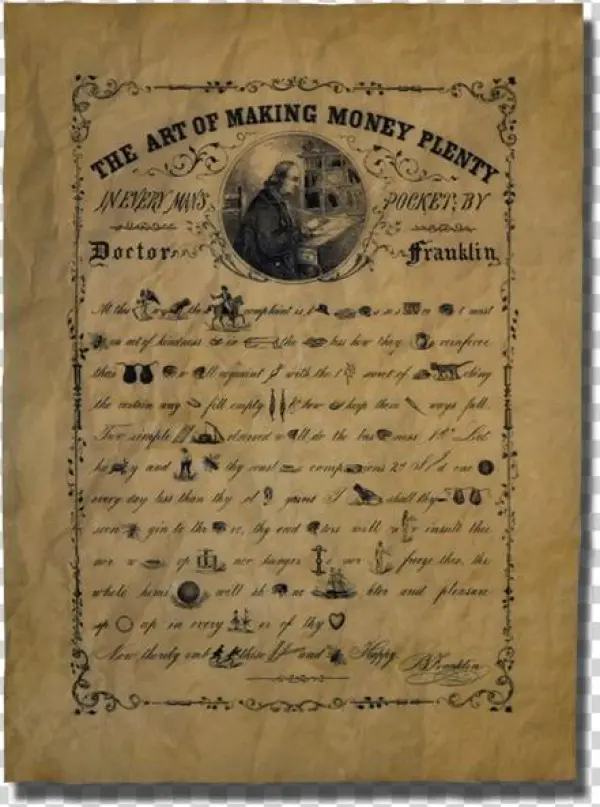 THE ART OF MAKING MONEY PLENTY
IN EVERY MAN'S POCKET; BY
Doctor Franklin
At this the complaint is t must
an act of kindness in the less how they reinforce
thei w ll acquaint with the t secret of ching
the certain way fill empty & how keep them ways full.
Two simple observed w ll do the bus ness. 1st Let
ho y and thy const comp ions 2d S d one
every day less than thy cl gains T shall thy
soon gin to thr ve, thy cred tors will insult thee
nor w op nor hunger nor freeze thee, the
whole hemi will sh ne hter and pleasure
sp up in every er of thy
Now thereby emb these and Happy. B. Franklin